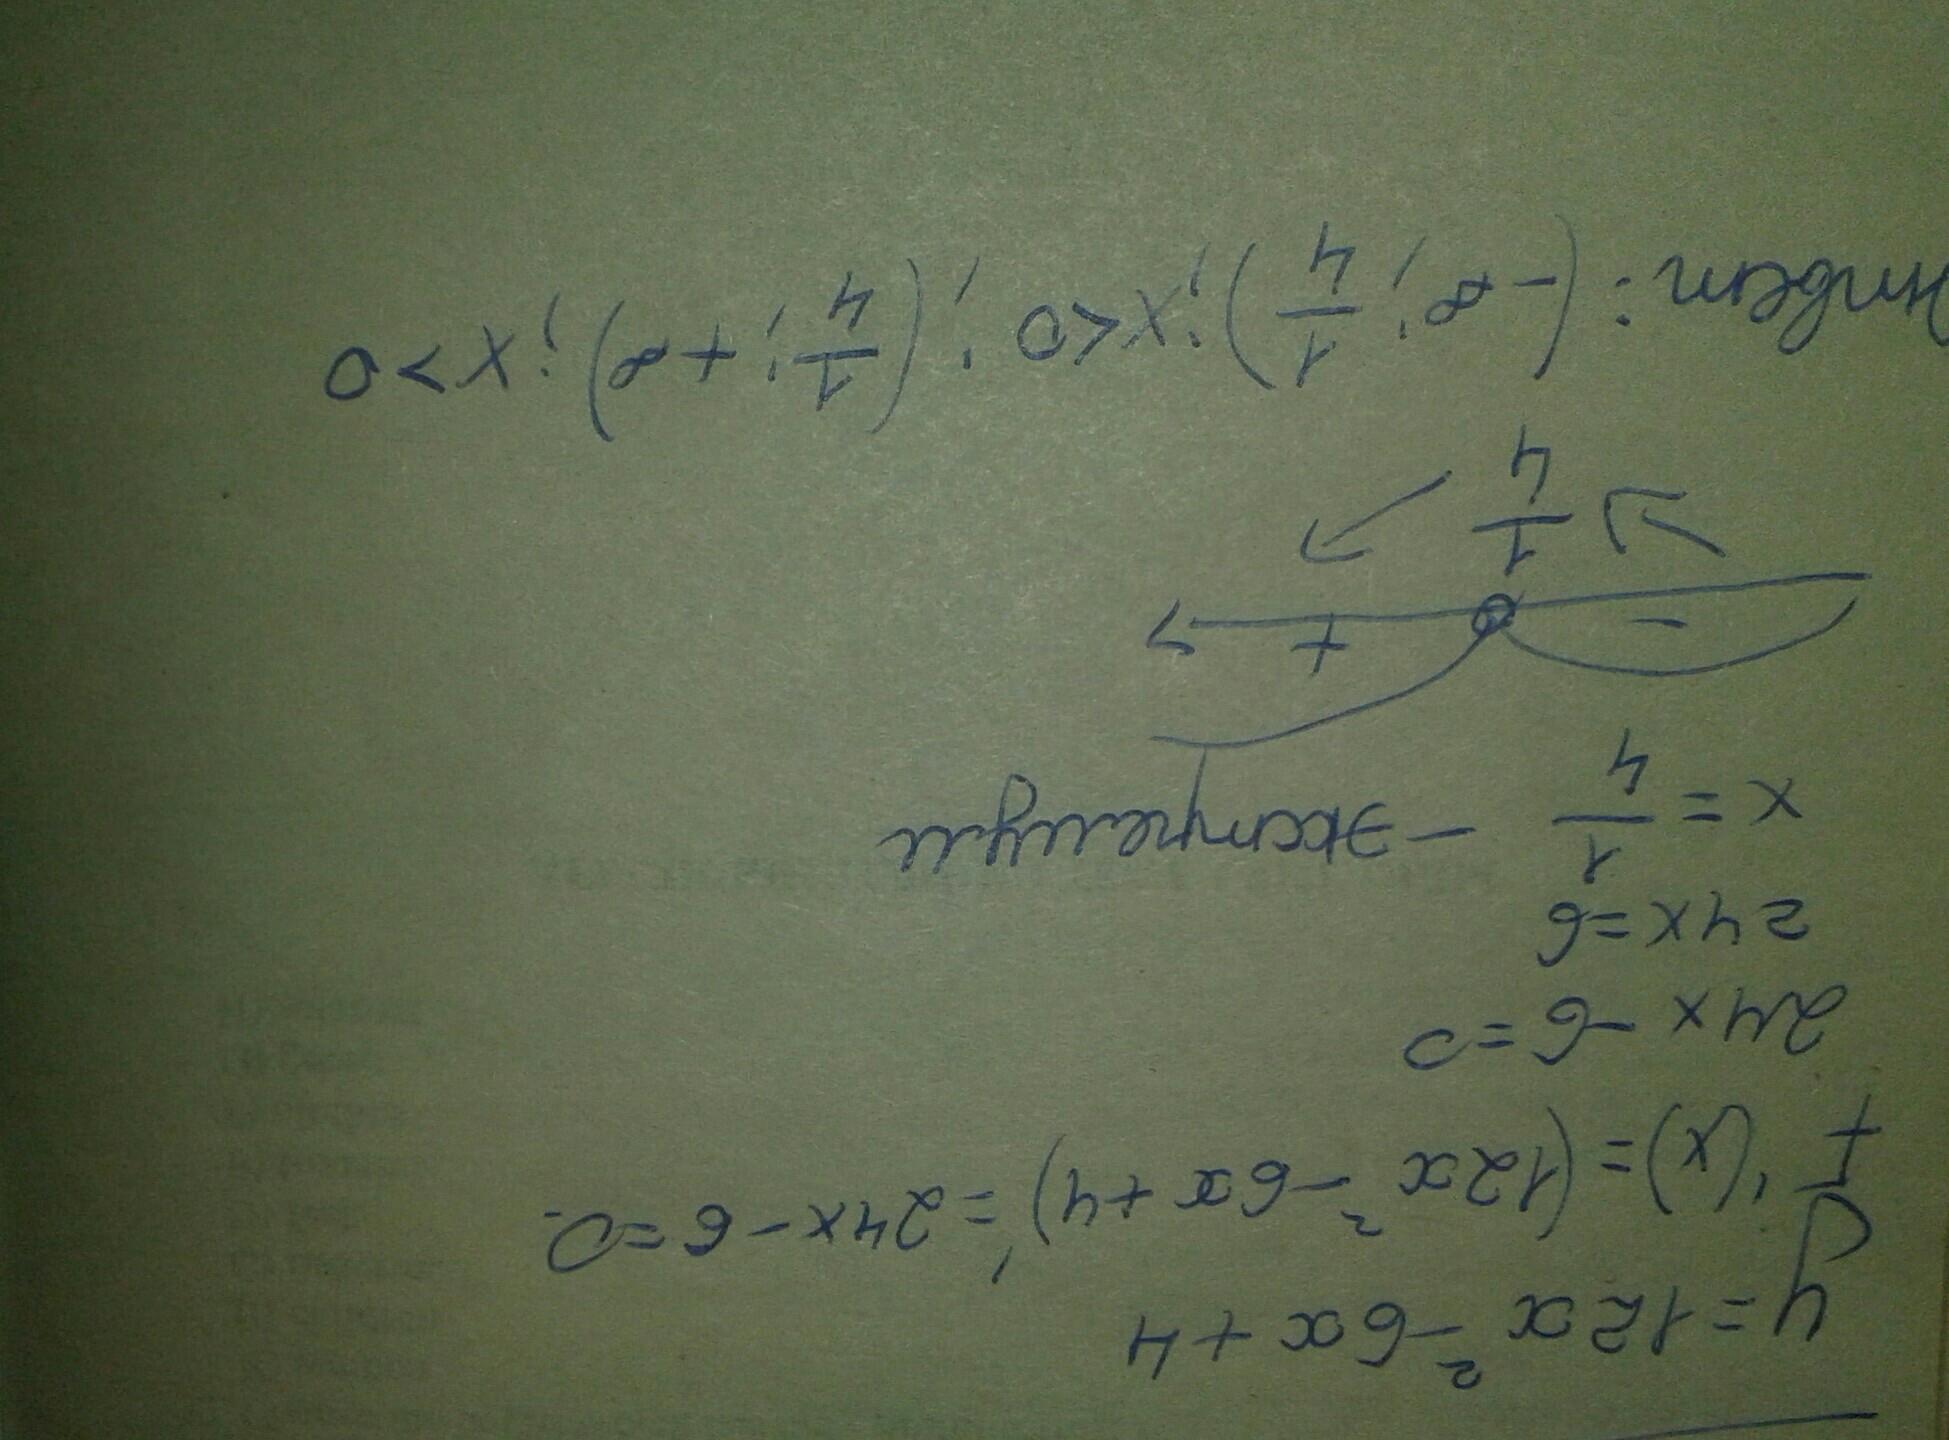 y=12x²-6x+4
f'(x)=(12x²-6x+4)'=24x-6=0.
24x-6=0
24x=6
x=1/4 - экстремум
- +
1/4
Ответ: (-∞; 1/4); x<0; (1/4; +∞); x>0